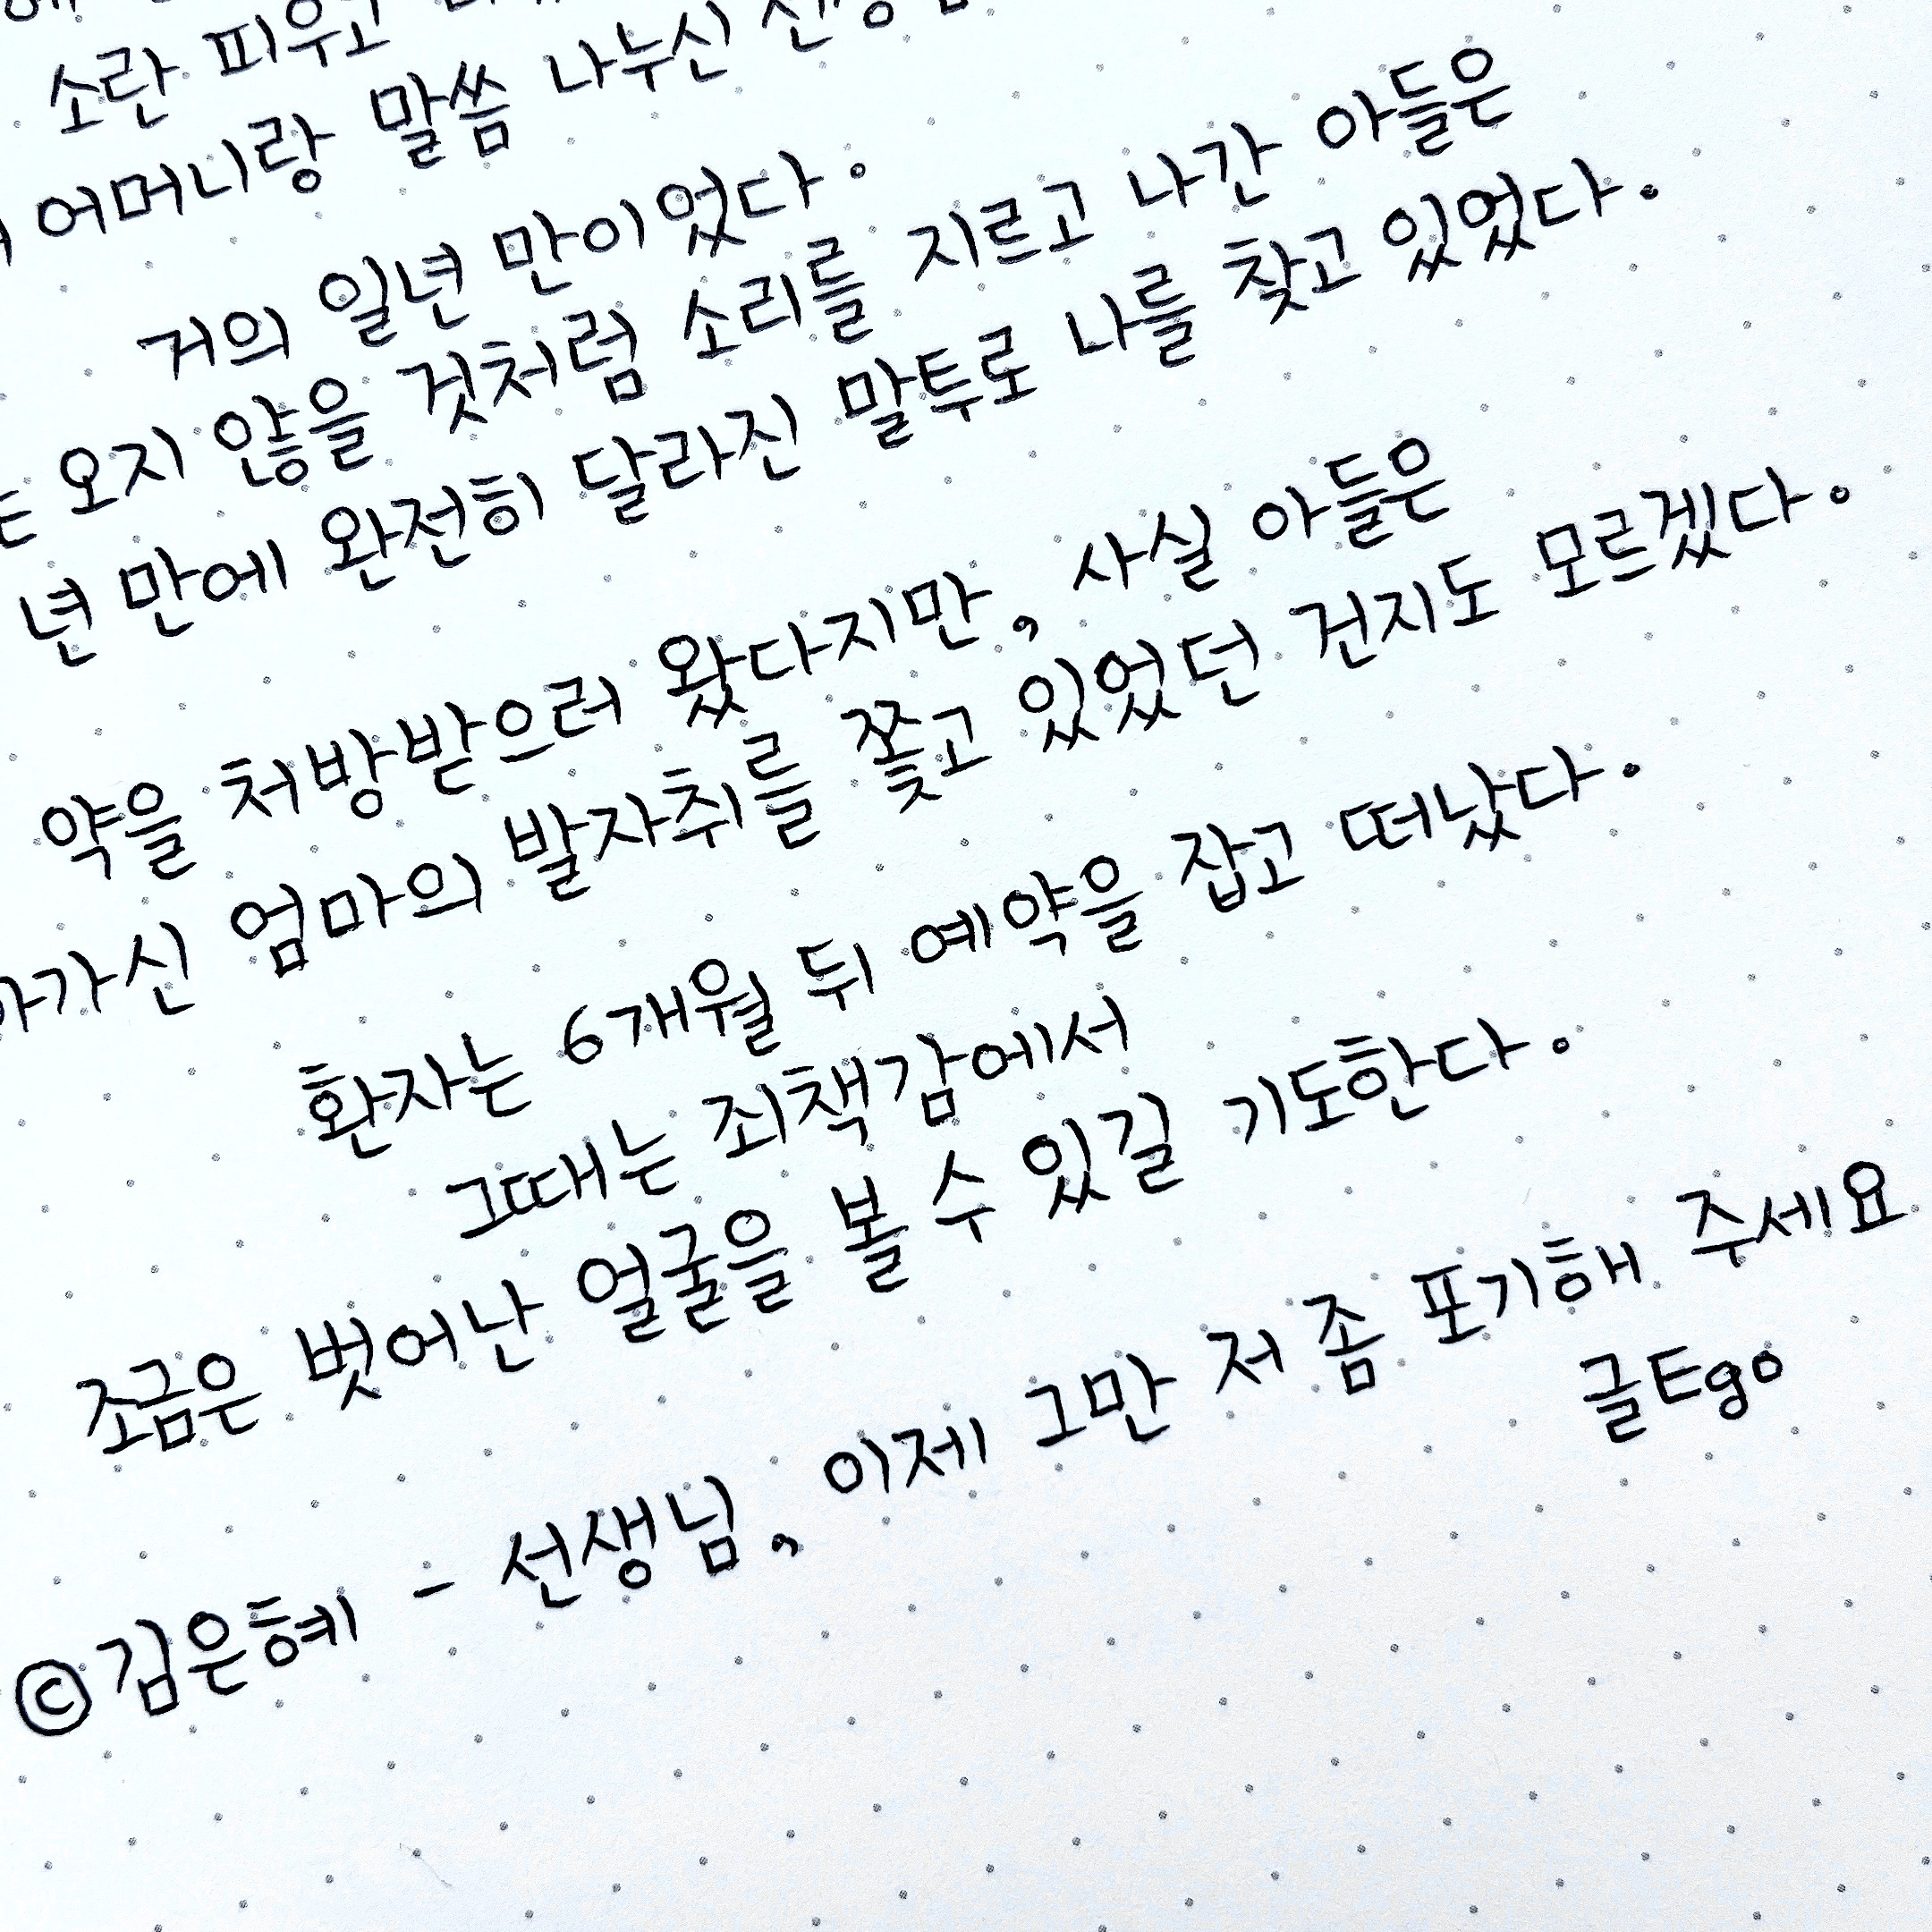 소란 피우고
어머니랑 말씀 나누신
거의 일년 만이었다.
오지 않을 것처럼 소리를 지르고 나간 아들은
년 만에 완전히 달라진 말투로 나를 찾고 있었다.
약을 처방받으러 왔다지만, 사실 아들은
가신 엄마의 발자취를 쫓고 있었던 건지도 모르겠다.
환자는 6개월 뒤 예약을 잡고 떠났다.
그때는 죄책감에서
조금은 벗어난 얼굴을 볼 수 있길 기도한다.
©김은혜 - 선생님, 이제 그만 저 좀 포기해 주세요
글Ego